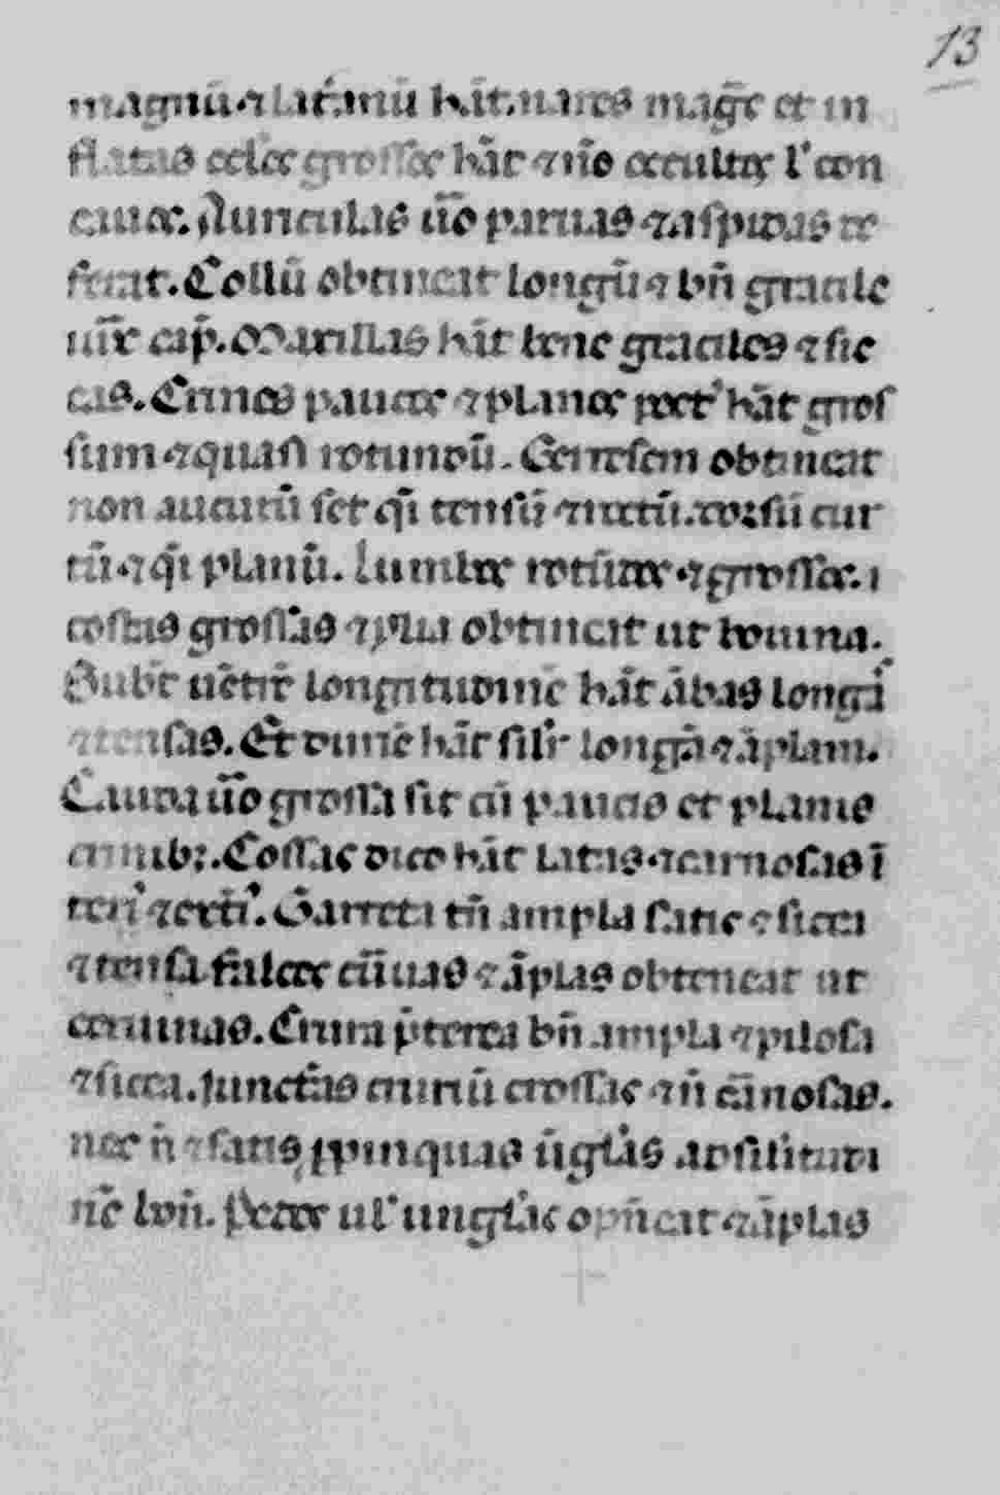 13
magnū ⁊ lat̄. inū hāt. nares magᷓs et in
flatas oclos grossos hāt ⁊ nō occultos l' con
cauos. Auriculas ūo paruas ⁊ aspidas re
ferat. Collū obtineat longū ⁊ bn̄ gracile
uīr cap̄. Maxillas hāt bene graciles ⁊ sic
cas. Crines paucos ⁊ planos pect' hāt gros
sum ⁊ quasi rotundū. Garresem obtineat
non acutū set q̄i tensū ⁊ rectū. dorsū cur
tū ⁊ q̄i planū. Lumbos rotūdos ⁊ grossos. ⁊
costas grossas obtineat ut bouina.
Subt̄ uētr̄ longitudinē hāt ābas longā
⁊ tensas. Et hāt silr̄ longā ⁊ āplam.
Cauda ūo grossa sit cū paucis et planis
crinibꝫ. Cossas dico hāt latas ⁊ carnosas ī
teri' ⁊ exti'. Garreta tn̄ ampla satis ⁊ sicca
⁊ tensa falces cūuas ⁊ āplas obteneat ut
ceruinas. Crura p̄terea bn̄ ampla ⁊ pilosa
⁊ sicca. Iunctās cruriū crossas ⁊ n̄ cānosas.
nec n̄ ⁊ satis ꝓpinquas ūgl'as ad silitudi
nē bou̅. Pedes ul' ungl'as opn̄eat ⁊ āplas